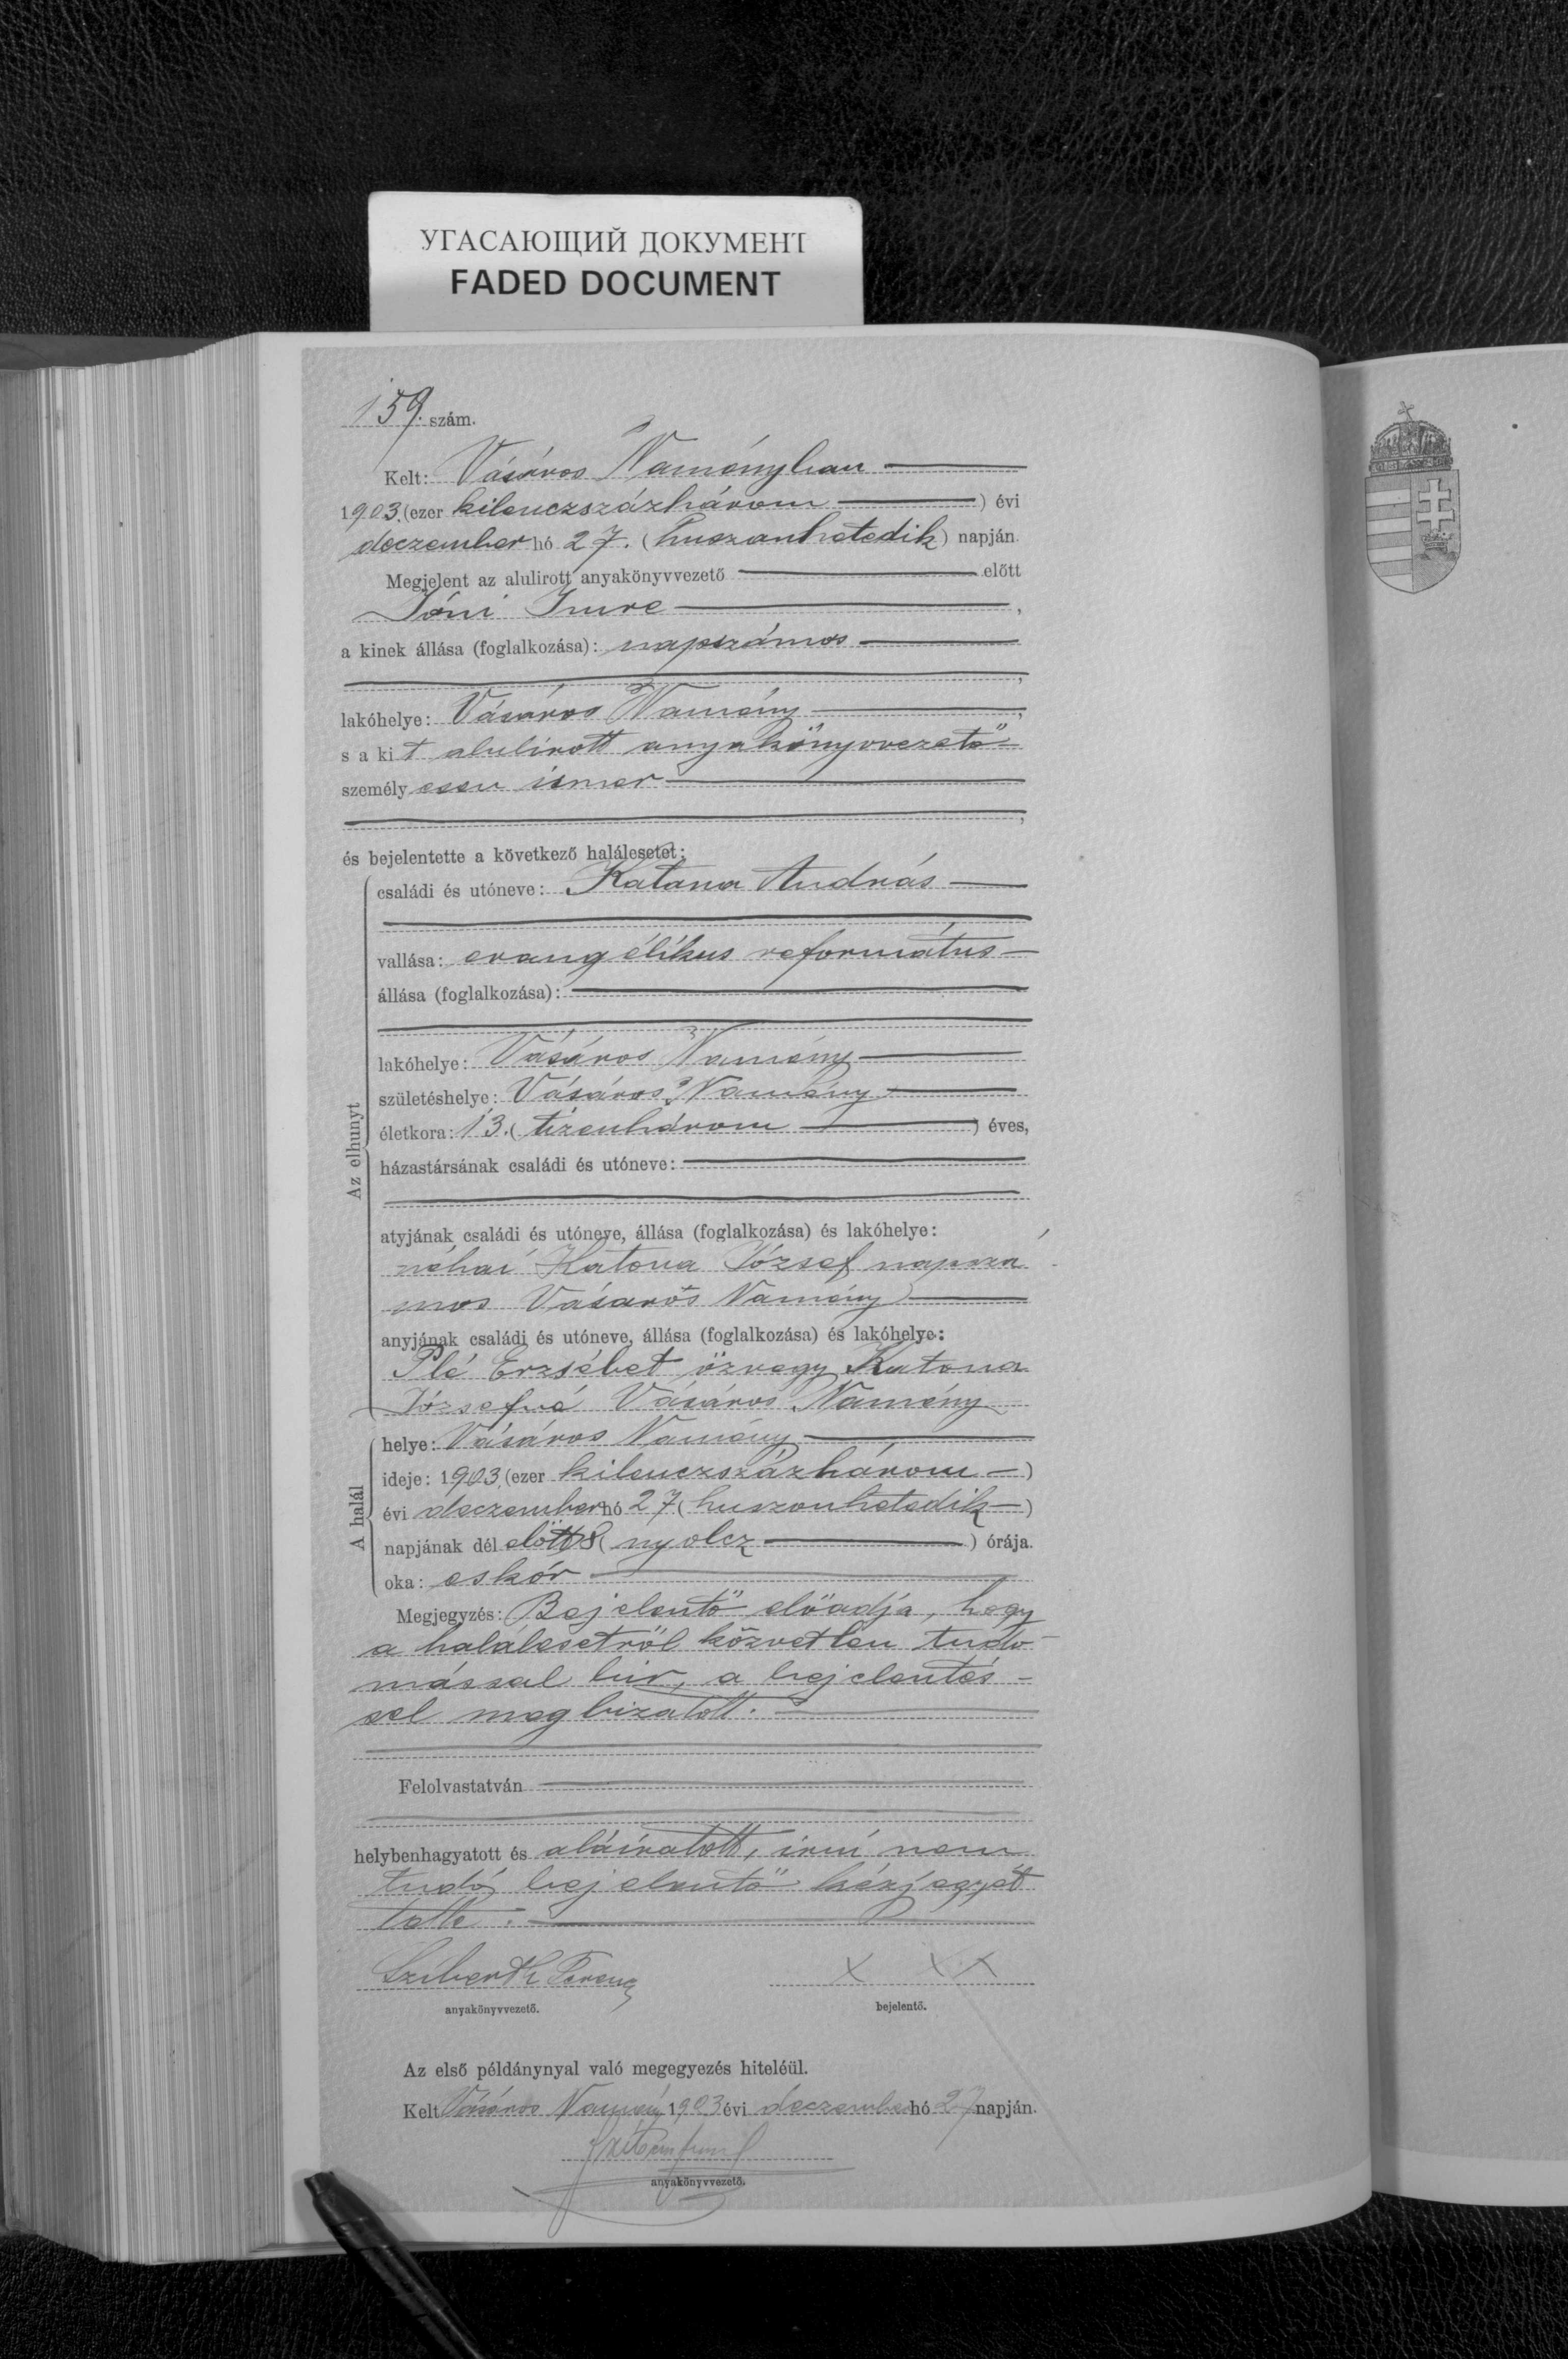 УГАСАЮЩИЙ ДОКУМЕНТ
FADED DOCUMENT
159. szám.
Kelt: Vásáros Naményban
1903. (ezer kilenczszázhárom ) évi
deczember hó 27. (huszonhetedik) napján.
Megjelent az alulirott anyakönyvvezető előtt
Imre ,
a kinek állása (foglalkozása): napszámos
,
lakóhelye: Vásáros Namény ,
s a kit alulirott anyakönyvvezető
személyesen ismer
,
és bejelentette a következő halálesetet:
Az elhunyt
családi és utóneve: Katona András
vallása: evangélikus református
állása (foglalkozása):
lakóhelye: Vásáros Namény
születéshelye: Vásáros Namény
életkora: 13. (tizenhárom ) éves,
házastársának családi és utóneve:
atyjának családi és utóneve, állása (foglalkozása) és lakóhelye:
néhai Katona József napszá-
mos Vásáros Namény
anyjának családi és utóneve, állása (foglalkozása) és lakóhelye:
Erzsébet özvegy Katona
Józsefné Vásáros Namény
A halál
helye: Vásáros Namény
ideje: 1903. (ezer kilenczszázhárom )
évi deczember hó 27. (huszonhetedik )
napjának dél előtt 8 (nyolcz ) órája.
oka: eskór
Megjegyzés: Bejelentő előadja, hogy
a halálesetről közvetlen tudo-
mással bir, a bejelentés-
sel megbizatott.
Felolvastatván
helybenhagyatott és aláiratott, irni nem
tudó bejelentő kézjegyét
tette.
Ferencz
x x x
anyakönyvvezető.
bejelentő.
Az első példánynyal való megegyezés hiteléül.
Kelt Vásáros Namény 1903 évi deczember hó 27 napján.
anyakönyvvezető.